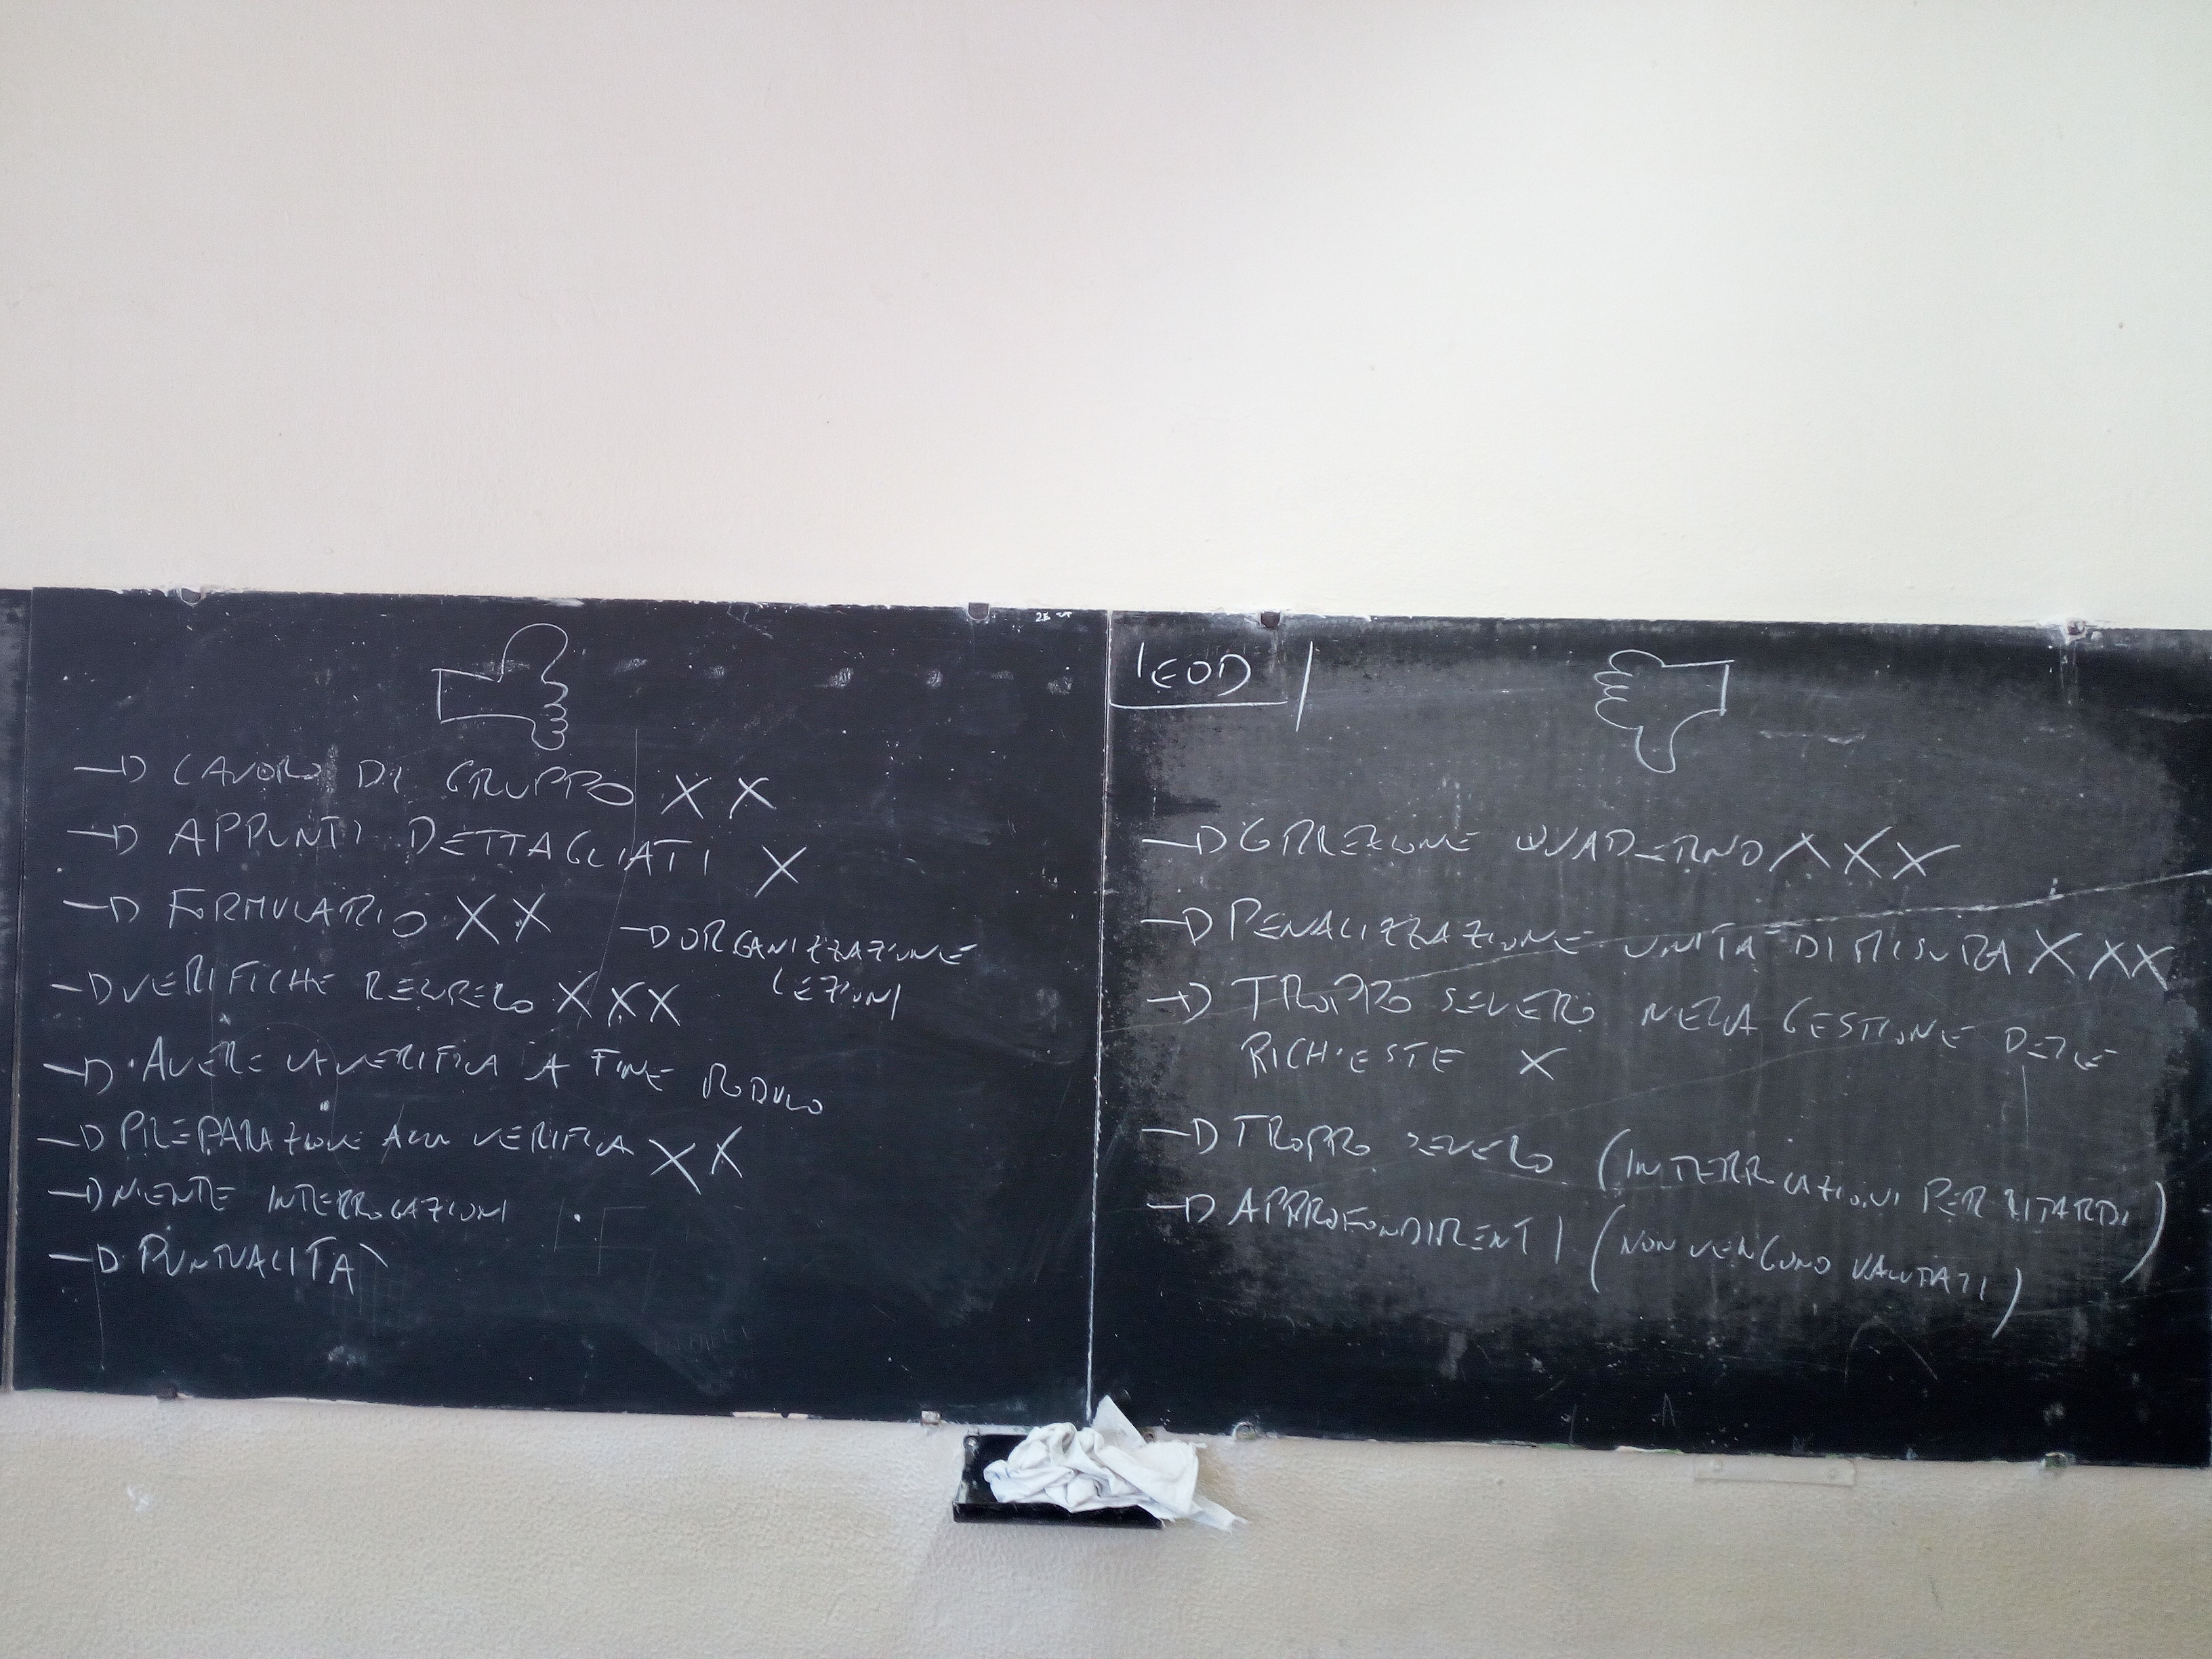 → LAVORO DI GRUPPO X X
→ APPUNTI DETTAGLIATI X
→ FORMULARIO X X
→ ORGANIZZAZIONE
LEZIONI
→ VERIFICHE RECUPERO X X X
→ AVERE LA VERIFICA A FINE MODULO
→ PREPARAZIONE ALLA VERIFICA X X
→ NIENTE INTERROGAZIONI
→ PUNTUALITÀ
1EOD
→ CORREZIONE QUADERNO X X X
→ PENALIZZAZIONE UNITÀ DI MISURA X X X
→ TROPPO SEVERO NELLA GESTIONE DELLE
RICHIESTE X
→ TROPPO SEVERO (INTERROGAZIONI PER RITARDI)
→ APPROFONDIMENTI (NON VENGONO VALUTATI)